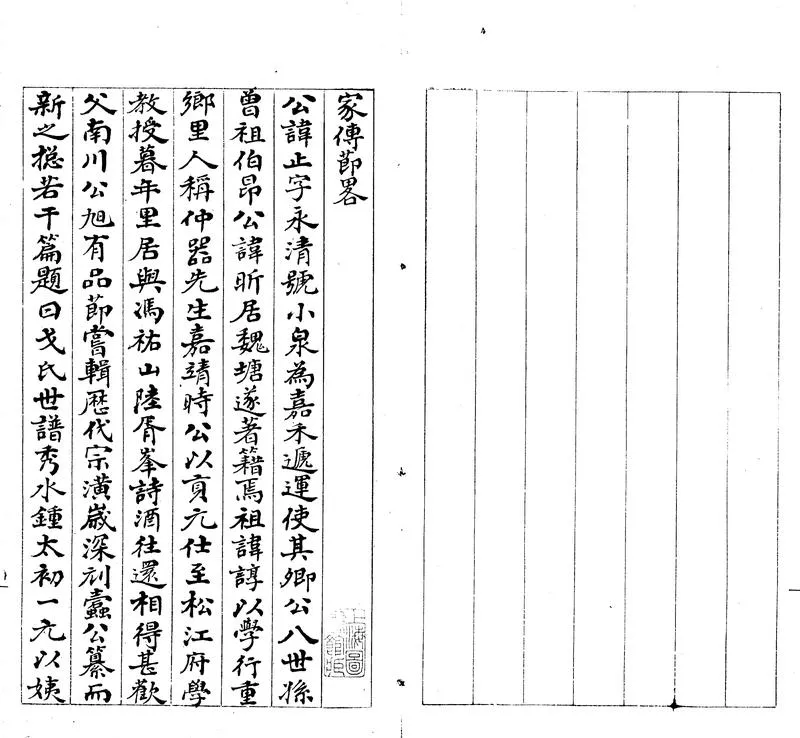 家傳節畧
公諱止字永清號小泉為嘉禾遞運使其卿公八世孫
曾祖伯昂公諱昕居魏塘遂著籍焉祖諱諄以學行重
鄉里人稱仲器先生嘉靖時公以貢元仕至松江府學
教授暮年里居與馮祐山陸胥峯詩酒往還相得甚歡
父南川公旭有品節嘗輯歷代宗潢歲深刓蠹公纂而
新之摠若干篇題曰戈氏世譜秀水鍾太初一元以姨
上海圖